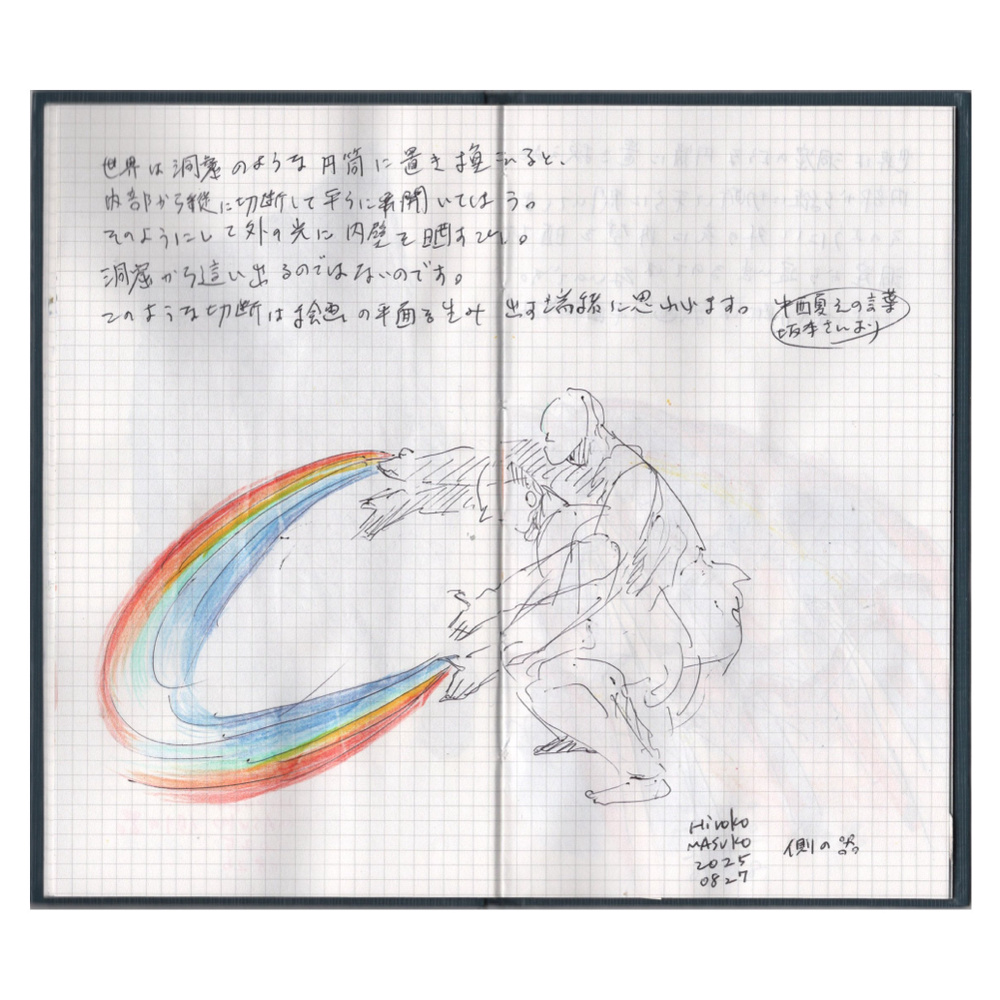 世界は洞窟のような円筒に置き換われると、
内部から縦に切断して平らに展開いてしまう。
そのようにして外の光に内壁を晒すでし。
洞窟から這い出るのではないのです。
このような切断は絵画の平面を生み出す端緒に思われます。
中西夏之の言葉
坂本さんより
Hiroko
MASUKO
2025
0827
側の器